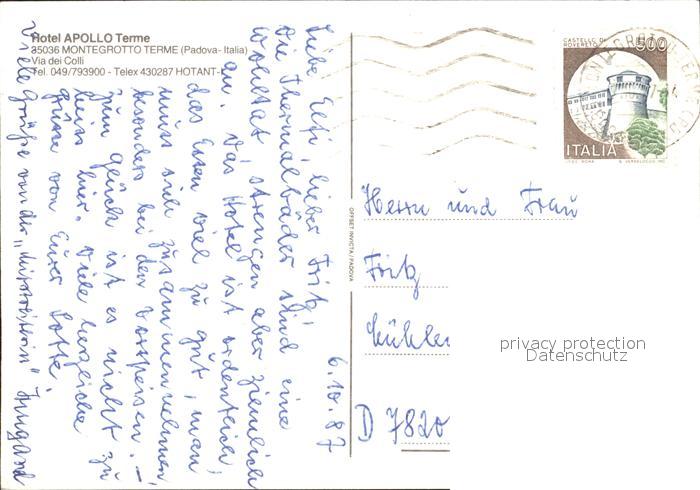 Hotel APOLLO Terme
35036 MONTEGROTTO TERME (Padova-Italia)
Via dei Colli
Tel. 049/793900 - Telex 430287 HOTANT-I
6.10.87
Liebe Elfi, lieber Fritz,
die Thermalbäder sind eine
Wohltat, strengen aber ziemlich
an. Das Hotel ist ordentlich,
das Essen viel zu gut, man
muss sich zusammennehmen,
besonders bei den Vorspeisen. –
Zum Glück ist es nicht zu
heiss hier. Viele herzliche
Grüsse von Eurer Lotte.
Viele Grüße von der " " Irmgard
OFFSET INVICTA/PADOVA
CASTELLO DI
ROVERETO
500
ITALIA
I.P.Z.S. ROMA
Herrn und Frau
Fritz
D 7820
privacy protection
Datenschutz